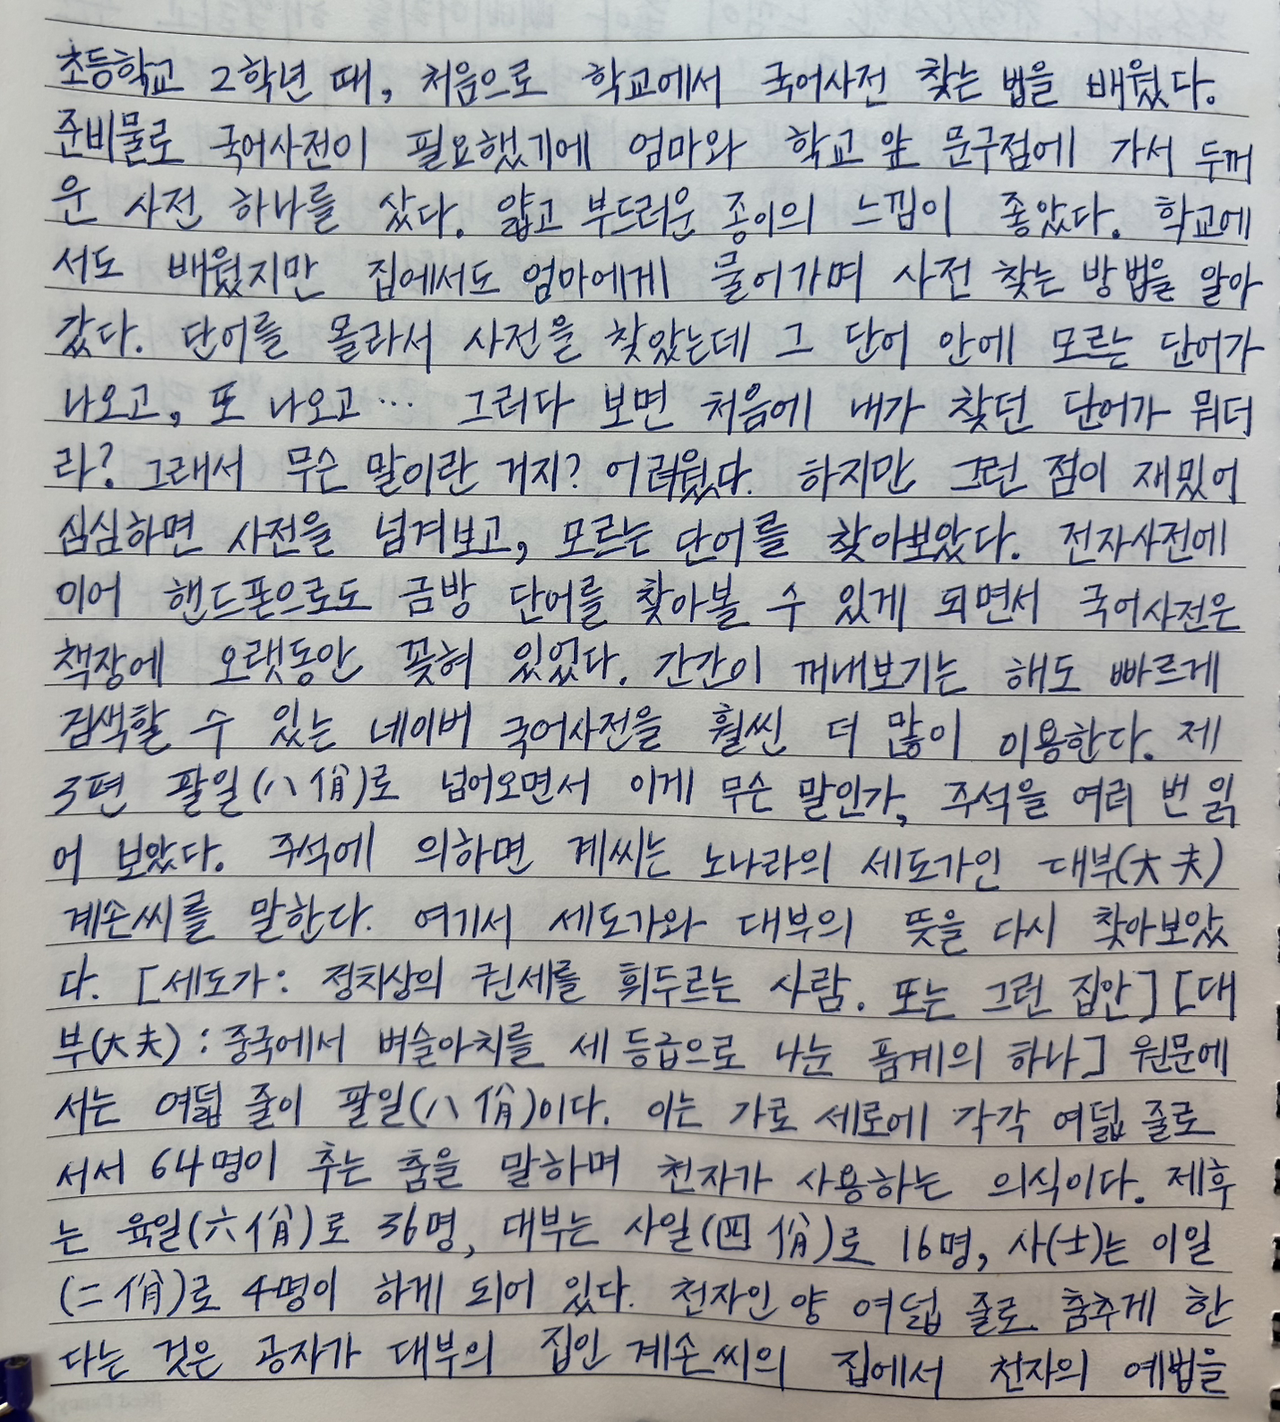 초등학교 2학년 때, 처음으로 학교에서 국어사전 찾는 법을 배웠다.
준비물로 국어사전이 필요했기에 엄마와 학교 앞 문구점에 가서 두꺼
운 사전 하나를 샀다. 얇고 부드러운 종이의 느낌이 좋았다. 학교에
서도 배웠지만 집에서도 엄마에게 물어가며 사전 찾는 방법을 알아
갔다. 단어를 몰라서 사전을 찾았는데 그 단어 안에 모르는 단어가
나오고, 또 나오고… 그러다 보면 처음에 내가 찾던 단어가 뭐더
라? 그래서 무슨 말이란 거지? 어려웠다. 하지만 그런 점이 재밌어
심심하면 사전을 넘겨보고, 모르는 단어를 찾아보았다. 전자사전에
이어 핸드폰으로도 금방 단어를 찾아볼 수 있게 되면서 국어사전은
책장에 오랫동안 꽂혀 있었다. 간간이 꺼내보기는 해도 빠르게
검색할 수 있는 네이버 국어사전을 훨씬 더 많이 이용한다. 제
3편 팔일(八佾)로 넘어오면서 이게 무슨 말인가, 주석을 여러 번 읽
어 보았다. 주석에 의하면 계씨는 노나라의 세도가인 대부(大夫)
계손씨를 말한다. 여기서 세도가와 대부의 뜻을 다시 찾아보았
다. [세도가: 정치상의 권세를 휘두르는 사람. 또는 그런 집안] [대
부(大夫) : 중국에서 벼슬아치를 세 등급으로 나눈 품계의 하나] 원문에
서는 여덟 줄이 팔일(八佾)이다. 이는 가로 세로에 각각 여덟 줄로
서서 64명이 추는 춤을 말하며 천자가 사용하는 의식이다. 제후
는 육일(六佾)로 36명, 대부는 사일(四佾)로 16명, 사(士)는 이일
(二佾)로 4명이 하게 되어 있다. 천자인 양 여덟 줄로 춤추게 한
다는 것은 공자가 대부의 집인 계손씨의 집에서 천자의 예법을